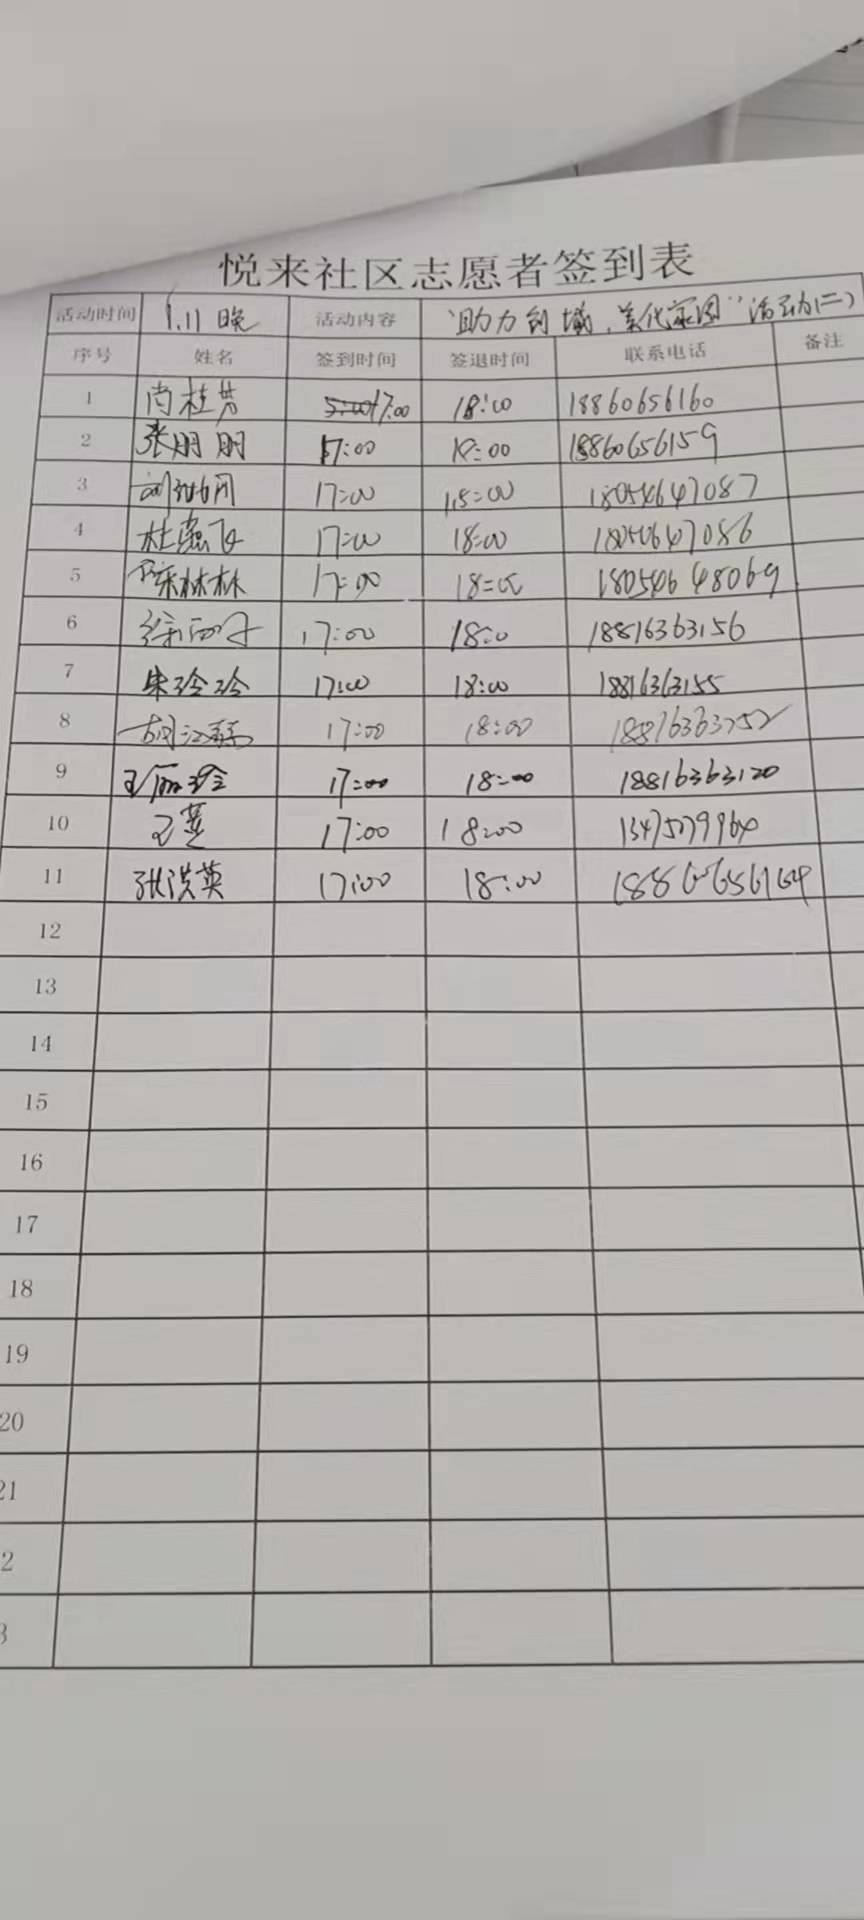 悦来社区志愿者签到表
活动时间 晚 活动内容 "助力创城，美化家园"活动(二)
序号 姓名 签到时间 签退时间 联系电话 备注
1 尚桂芳 17:00 18:00 18860656160
2 张朋朋 17:00 18:00 18860656159
3 17:00 18:00
4 杜 飞 17:00 18:00
5 陈林林 17:00 18:00 18054648069
6 17:00 18:0 18816363156
7 朱玲玲 17:00 18:00 18816363155
8 胡 17:00 18:00
9 王丽玲 17:00 18:00 18816363120
10 17:00 18:00
11 张洪英 17:00 18:00
12
13
14
15
16
17
18
19
20
21
2
3